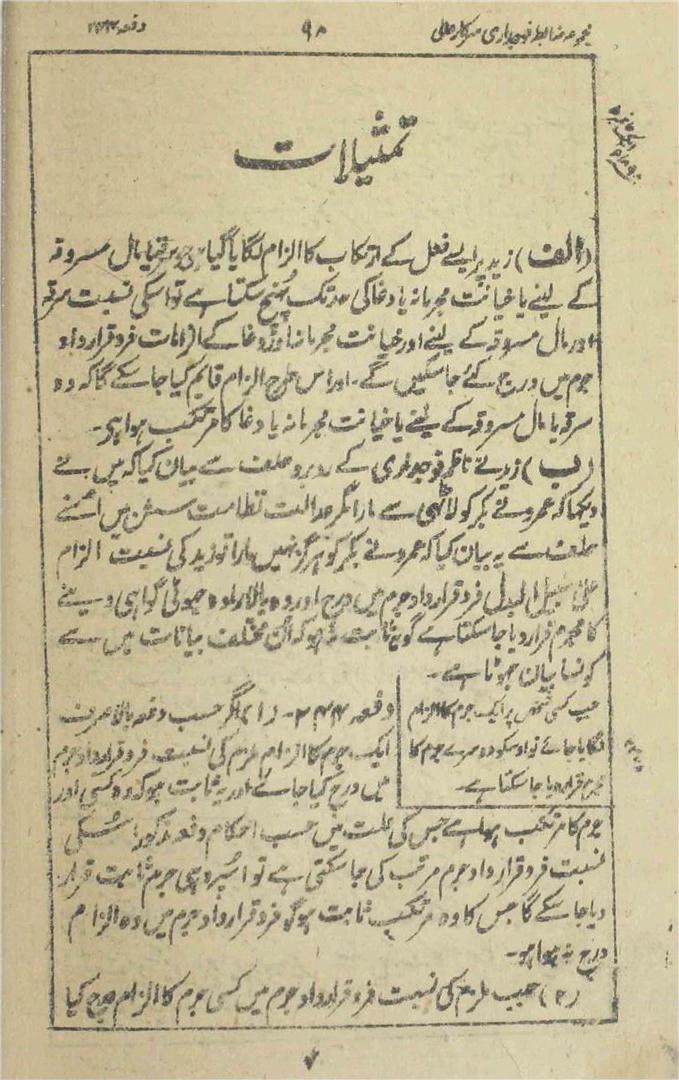 مجموعہ ضابطہ فوجداری سرکار عالی
۹۸
دفعہ ۲۴۴
تمثیلات
(الف) زید پر ایسے فعل کے ارتکاب کا الزام لگایا گیا ہے جو سرقہ یا مال مسروقہ
کے لینے یا خیانت مجرمانہ یا دغا کی حد تک پہنچ سکتا ہے تو اسکی نسبت سرقہ
اور مال مسروقہ کے لینے اور خیانت مجرمانہ اور دغا کے الزامات فرد قرارداد
جرم میں درج کئے جا سکیں گے۔ اور اس طرح الزام قایم کیا جا سکے گا کہ وہ
سرقہ یا مال مسروقہ کے لینے یا خیانت مجرمانہ یا دغا کا مرتکب ہوا ہی۔
(ب) زید نے ناظم فوجداری کے روبرو حلف سے بیان کیا کہ میں نے
دیکھا کہ عمرو نے بکر کو لاٹھی سے مارا مگر عدالت نظامت سشن میں اُسنے
حلف سے یہ بیان کیا کہ عمرو نے بکر کو ہرگز نہیں مارا تو زید کی نسبت الزام
علیٰ سبیل البدل فرد قرارداد جرم میں درج اور وہ بالارادہ جھوٹی گواہی دینے
کا مجرم قرار دیا جا سکتا ہے گو یہ ثابت نہ ہو کہ اُن مختلف بیانات میں سے
کونسا بیان جھوٹا ہے۔
جب کسی شخص پر ایک جرم کا الزام
لگایا جائے تو اوسکو دوسرے جرم کا
مجرم قرار دیا جا سکتا ہے۔
دفعہ ۲۴۴۔ (۱) اگر حسب دفعہ بالا صرف
ایک جرم کا الزام ملزم کی نسبت فرد قرارداد جرم
میں درج کیا جائے اور یہ ثابت ہو کہ وہ کسی اور
جرم کا مرتکب ہوا ہے جس کی علت میں حسب احکام دفعہ مذکور اسکی
نسبت فرد قرارداد جرم مرتب کی جا سکتی ہے تو اسپر وہی جرم ثابت قرار
دیا جا سکے گا جس کا وہ مرتکب ثابت ہو گو فرد قرارداد جرم میں وہ الزام
درج نہ ہوا ہو۔
(۲) جب ملزم کی نسبت فرد قرارداد جرم میں کسی جرم کا الزام درج کیا